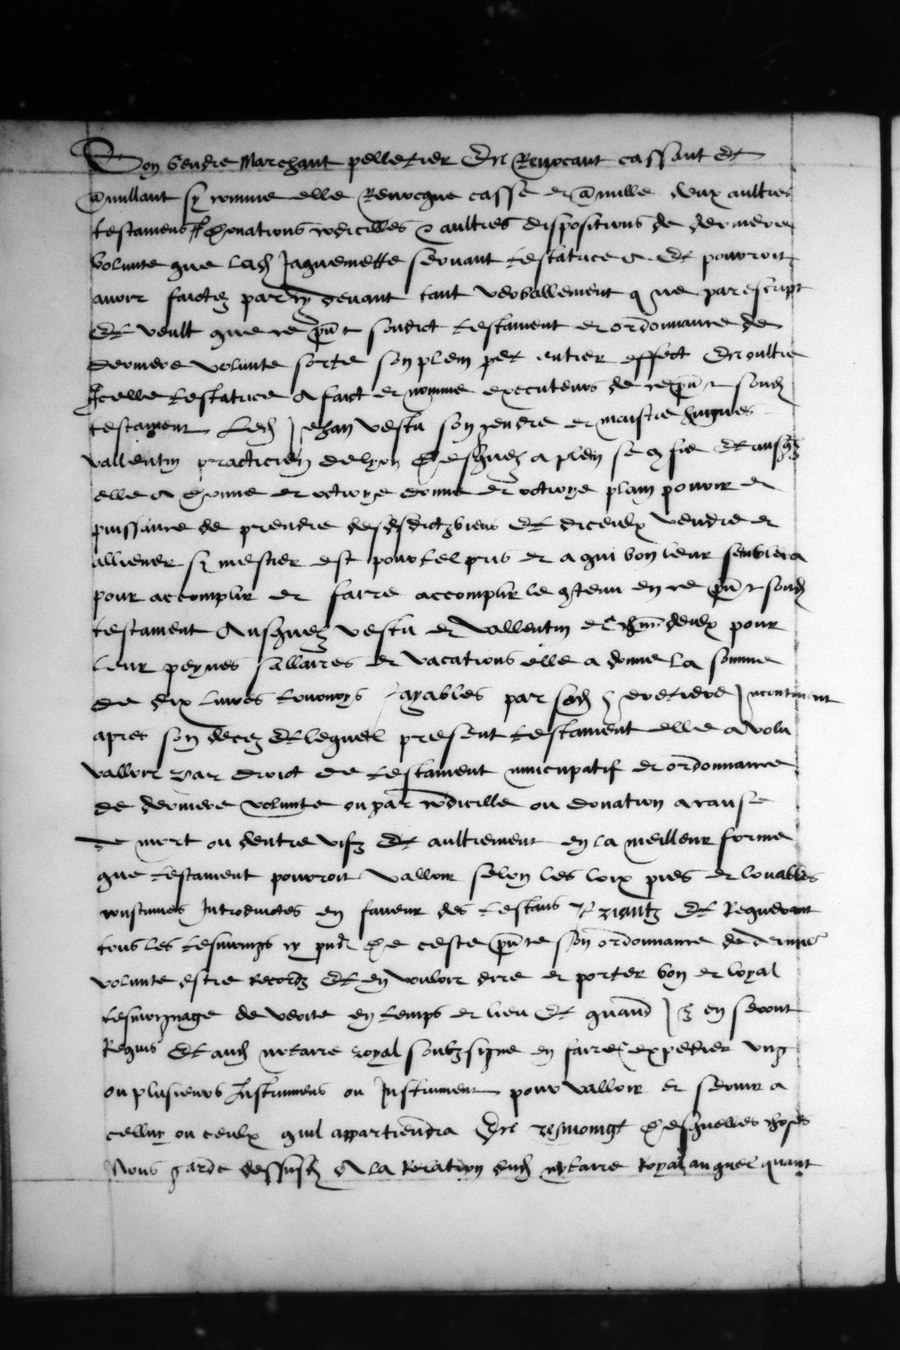 Son gendre marchant pelletier En Revocant cassant Et
anullant sy comme elle Revocque casse et anulle deux aultres
testamens donations codicilles & aultres dispositions de derniere
volunte que lad Jaquemette servant testatrice a Et pouvroit
avoir faictz par cy devant tant verballement que par escript
Et veult que ce pnt sondict testament et ordonnance de
derniere volunte sorte son plein et entier effect En oultre
Icelle testatrice A faict et nomme executeurs de ce pnt sond
testament Led Jehan vestu son gendre et maistre hugues
vallentin practicien de lyon Desquelz a plein se y fie Et ausqlz
elle a donne et octroye donne et octroye plain povoir et
puissance de prendre desdictz biens Et diceulx vendre et
alliener sy mestier est pour tel pris et a qui bon leur semblera
pour accomplir et faire accomplir le contenu en ce pnt sond
testament Ausquelz vestu et vallentin et chun deulx pour
leur peynes sallaires et vacations elle a donne la somme
de dix livres tournoys payables par sad heretiere Incontinent
apres son decez Et lequel present testament elle a volu
valloir par droict de testament nuncupatif et ordonnance
de derniere volunte ou par codicille ou donation a cause
de mort ou dentre vifz Et aultrement en la meilleur forme
que testament pouvroit valloir selon les loix pies et louables
coustumes Introductes en faveur des testans Et Requerant
tous les tesmoings cy pns De ceste pnte son ordonnance de derniere
volunte estre recordz Et en vouloir dire et porter bon et loyal
tesmoignage de verite en temps et lieu Et quand Ilz en seront
Requis Et aud notaire royal soubzsigne en faire expedier ung
ou plusieurs Instrumens ou Instrument pour valloir et servir a
celluy ou ceulx quil appartiendra En tesmoingt Desquelles choses
Nous garde dessusd A la Relation dud notaire Royal auquel quant